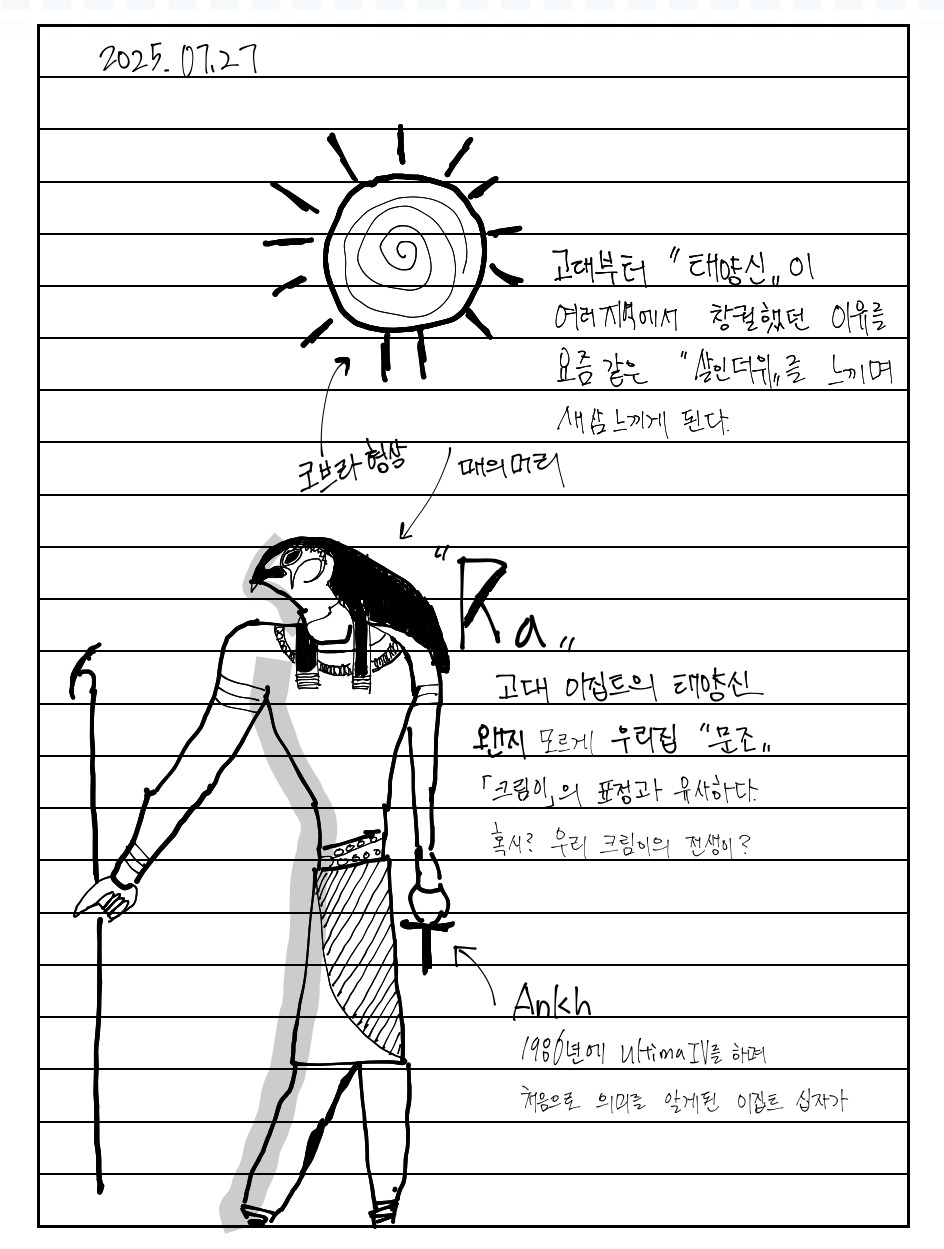 2025.07.27
고대부터 "태양신"이
여러지역에서 창궐했던 이유를
요즘 같은 "살인더위"를 느끼며
새삼느끼게 된다.
코브라 형상
매의머리
"Ra"
고대 이집트의 태양신
왠지 모르게 우리집 "문조"
「크림이」의 표정과 유사하다.
혹시? 우리 크림이의 전생이?
Ankh
1986년에 UltimaIV를 하며
처음으로 의미를 알게된 이집트 십자가